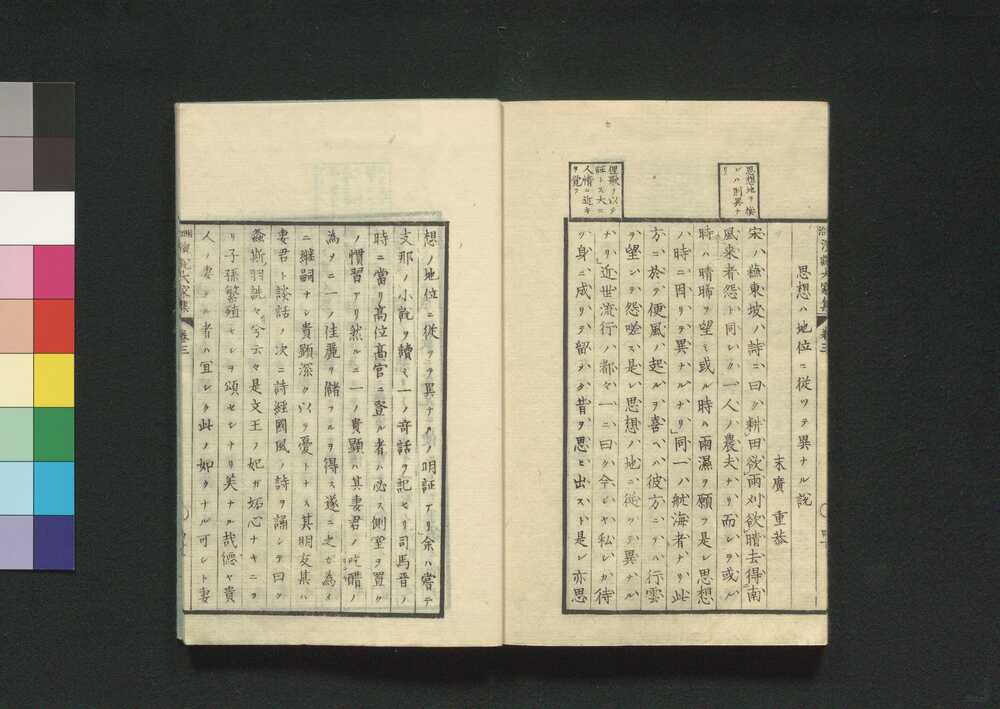 思想ハ地位ニ從ツテ異ナル説
末廣重恭
宋ノ蘇東坡ノ詩ニ曰ク耕田欲雨刈欲晴去得南
風來者怨ト同シク一人ノ農夫ナリ而シテ或ル
時ハ晴晞ヲ望ミ或ル時ハ雨濕ヲ願フ是レ思想
ハ時ニ因リテ異ナルナリ同一ノ航海者ナリ此
方ニ於テ便風ノ起ルヲ喜ベハ彼方ニテハ行雲
ヲ望シテ怨嗟ス是レ思想ノ地ニ從ツテ異ナル
ナリ近世流行ノ都々一ニ曰ク余シヤ私シガ待
ツ身ニ成リテ留メタ昔ヲ思ヒ出スト是レ亦思
思想地ヲ換
レハ則異ナ
リ
俚歌ヲ以テ
証トス大ニ
人情ニ近キ
ヲ覺フ
想ノ地位ニ從ツテ異ナルノ明証アリ余ハ嘗テ
支那ノ小説ヲ讀ミ一ノ奇話ヲ記セリ司馬晉ノ
時ニ當リ高位高官ニ登ル者ハ必ス側室ヲ置ク
ノ慣習アリ然ルニ一ノ貴顯ハ其妻君ノ吃醋ノ
為メニ一ノ佳麗ヲ儲フルヲ得ス遂ニ之ガ為メ
ニ繼嗣ナシ貴顯深ク以テ憂トナス其明友某ハ
妻君ト談話ノ次ニ詩經國風ノ詩ヲ誦シテ曰ク
螽斯羽詵々兮云々是文王ノ妃ガ妬心ナキニヨ
リ子孫繁殖セシヲ頌セシナリ美ナル哉德ヤ貴
人ノ妻タル者ハ宜シク此ノ如クナル可シト妻
演説大家集
卷三